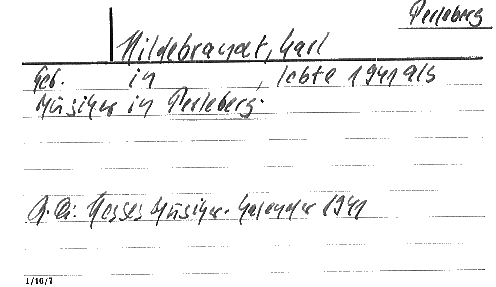 Perleberg
Hildebrandt, Carl
Geb. in , lebte 1941 als
Musiker in Perleberg.
Hesses Musiker-Kalender 1941
1/16/7